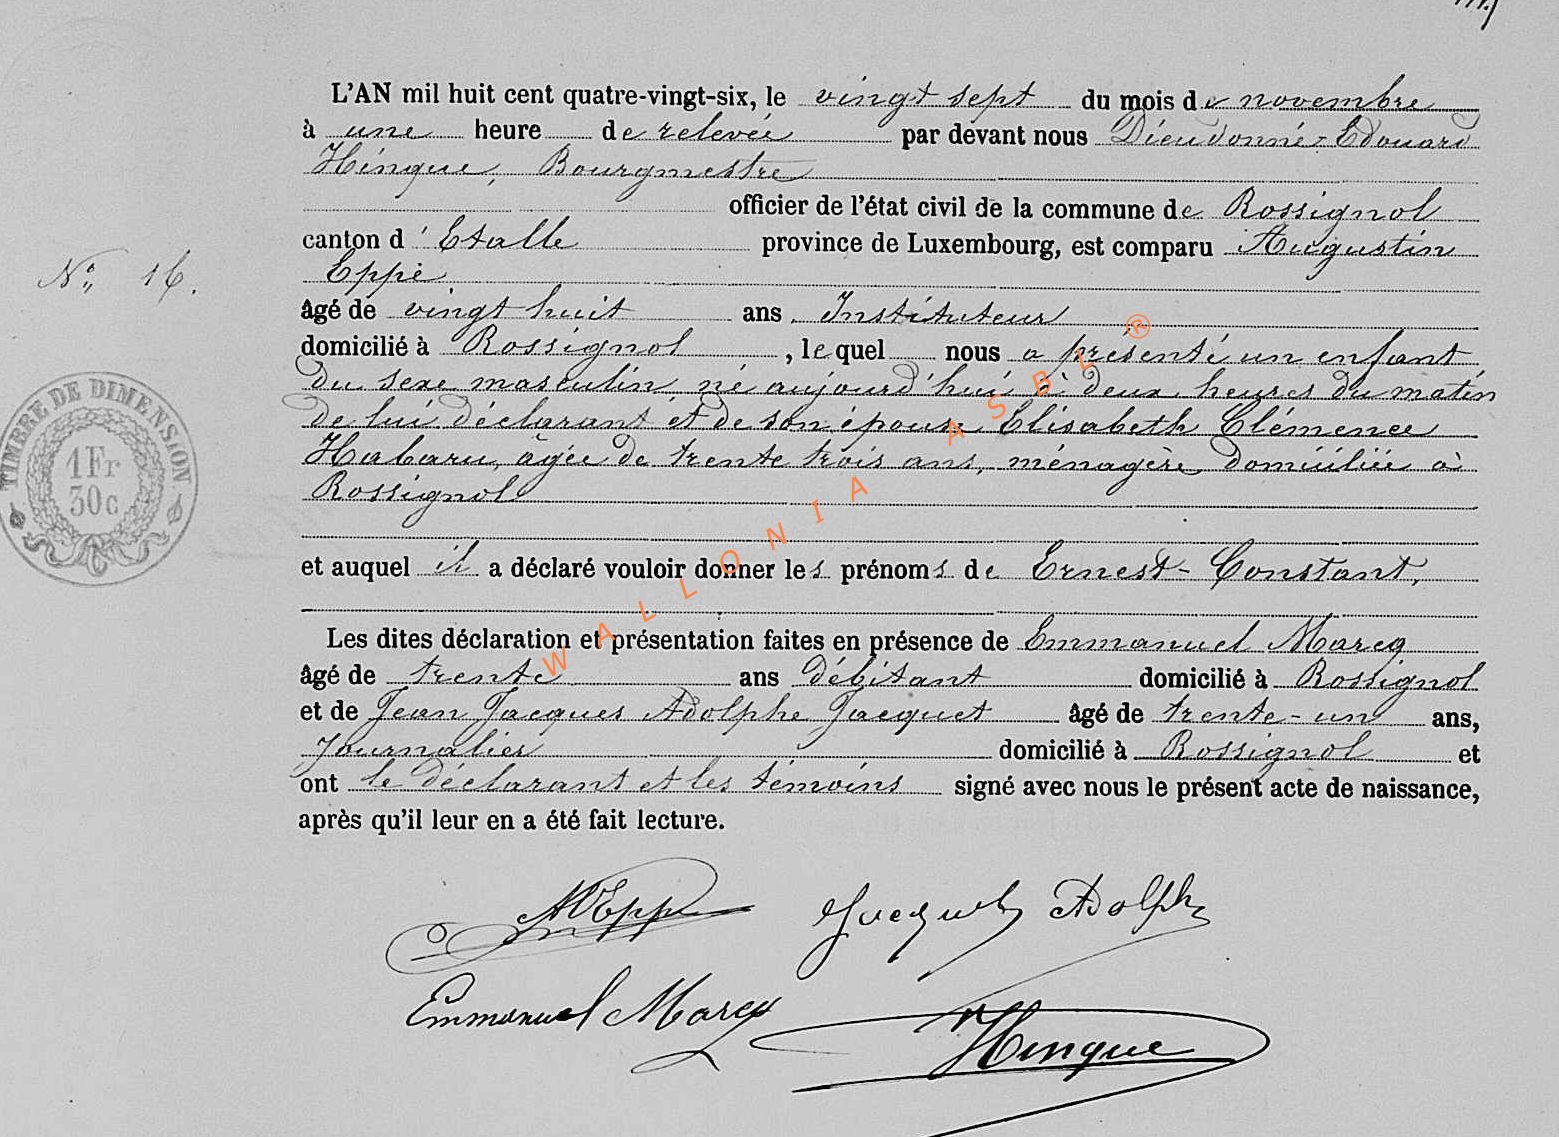 L'AN mil huit cent quatre-vingt-six, le vingt sept du mois de novembre
à une heure de relevée par devant nous Dieudonné-Edouard
Hinque, Bourgmestre
officier de l'état civil de la commune de Rossignol
canton d'Etalle province de Luxembourg, est comparu Augustin
Eppe
N° 16.
âgé de vingt huit ans Instituteur
domicilié à Rossignol, lequel nous a présenté un enfant
du sexe masculin, né aujourd'hui à deux heures du matin
de lui déclarant et de son épouse Elisabeth Clémence
Habaru, âgée de trente trois ans, ménagère domiciliée à
Rossignol
et auquel il a déclaré vouloir donner les prénoms de Ernest-Constant,
Les dites déclaration et présentation faites en présence de Emmanuel Marcq
âgé de trente ans débitant domicilié à Rossignol
et de Jean Jacques Adolphe Jacquet âgé de trente-un ans,
Journalier domicilié à Rossignol et
ont le déclarant et les témoins signé avec nous le présent acte de naissance,
après qu'il leur en a été fait lecture.
TIMBRE DE DIMENSION
1Fr
30c
WALLONIA ASBL ®
Jacquet Adolphe
Emmanuel Marcq
Hinque